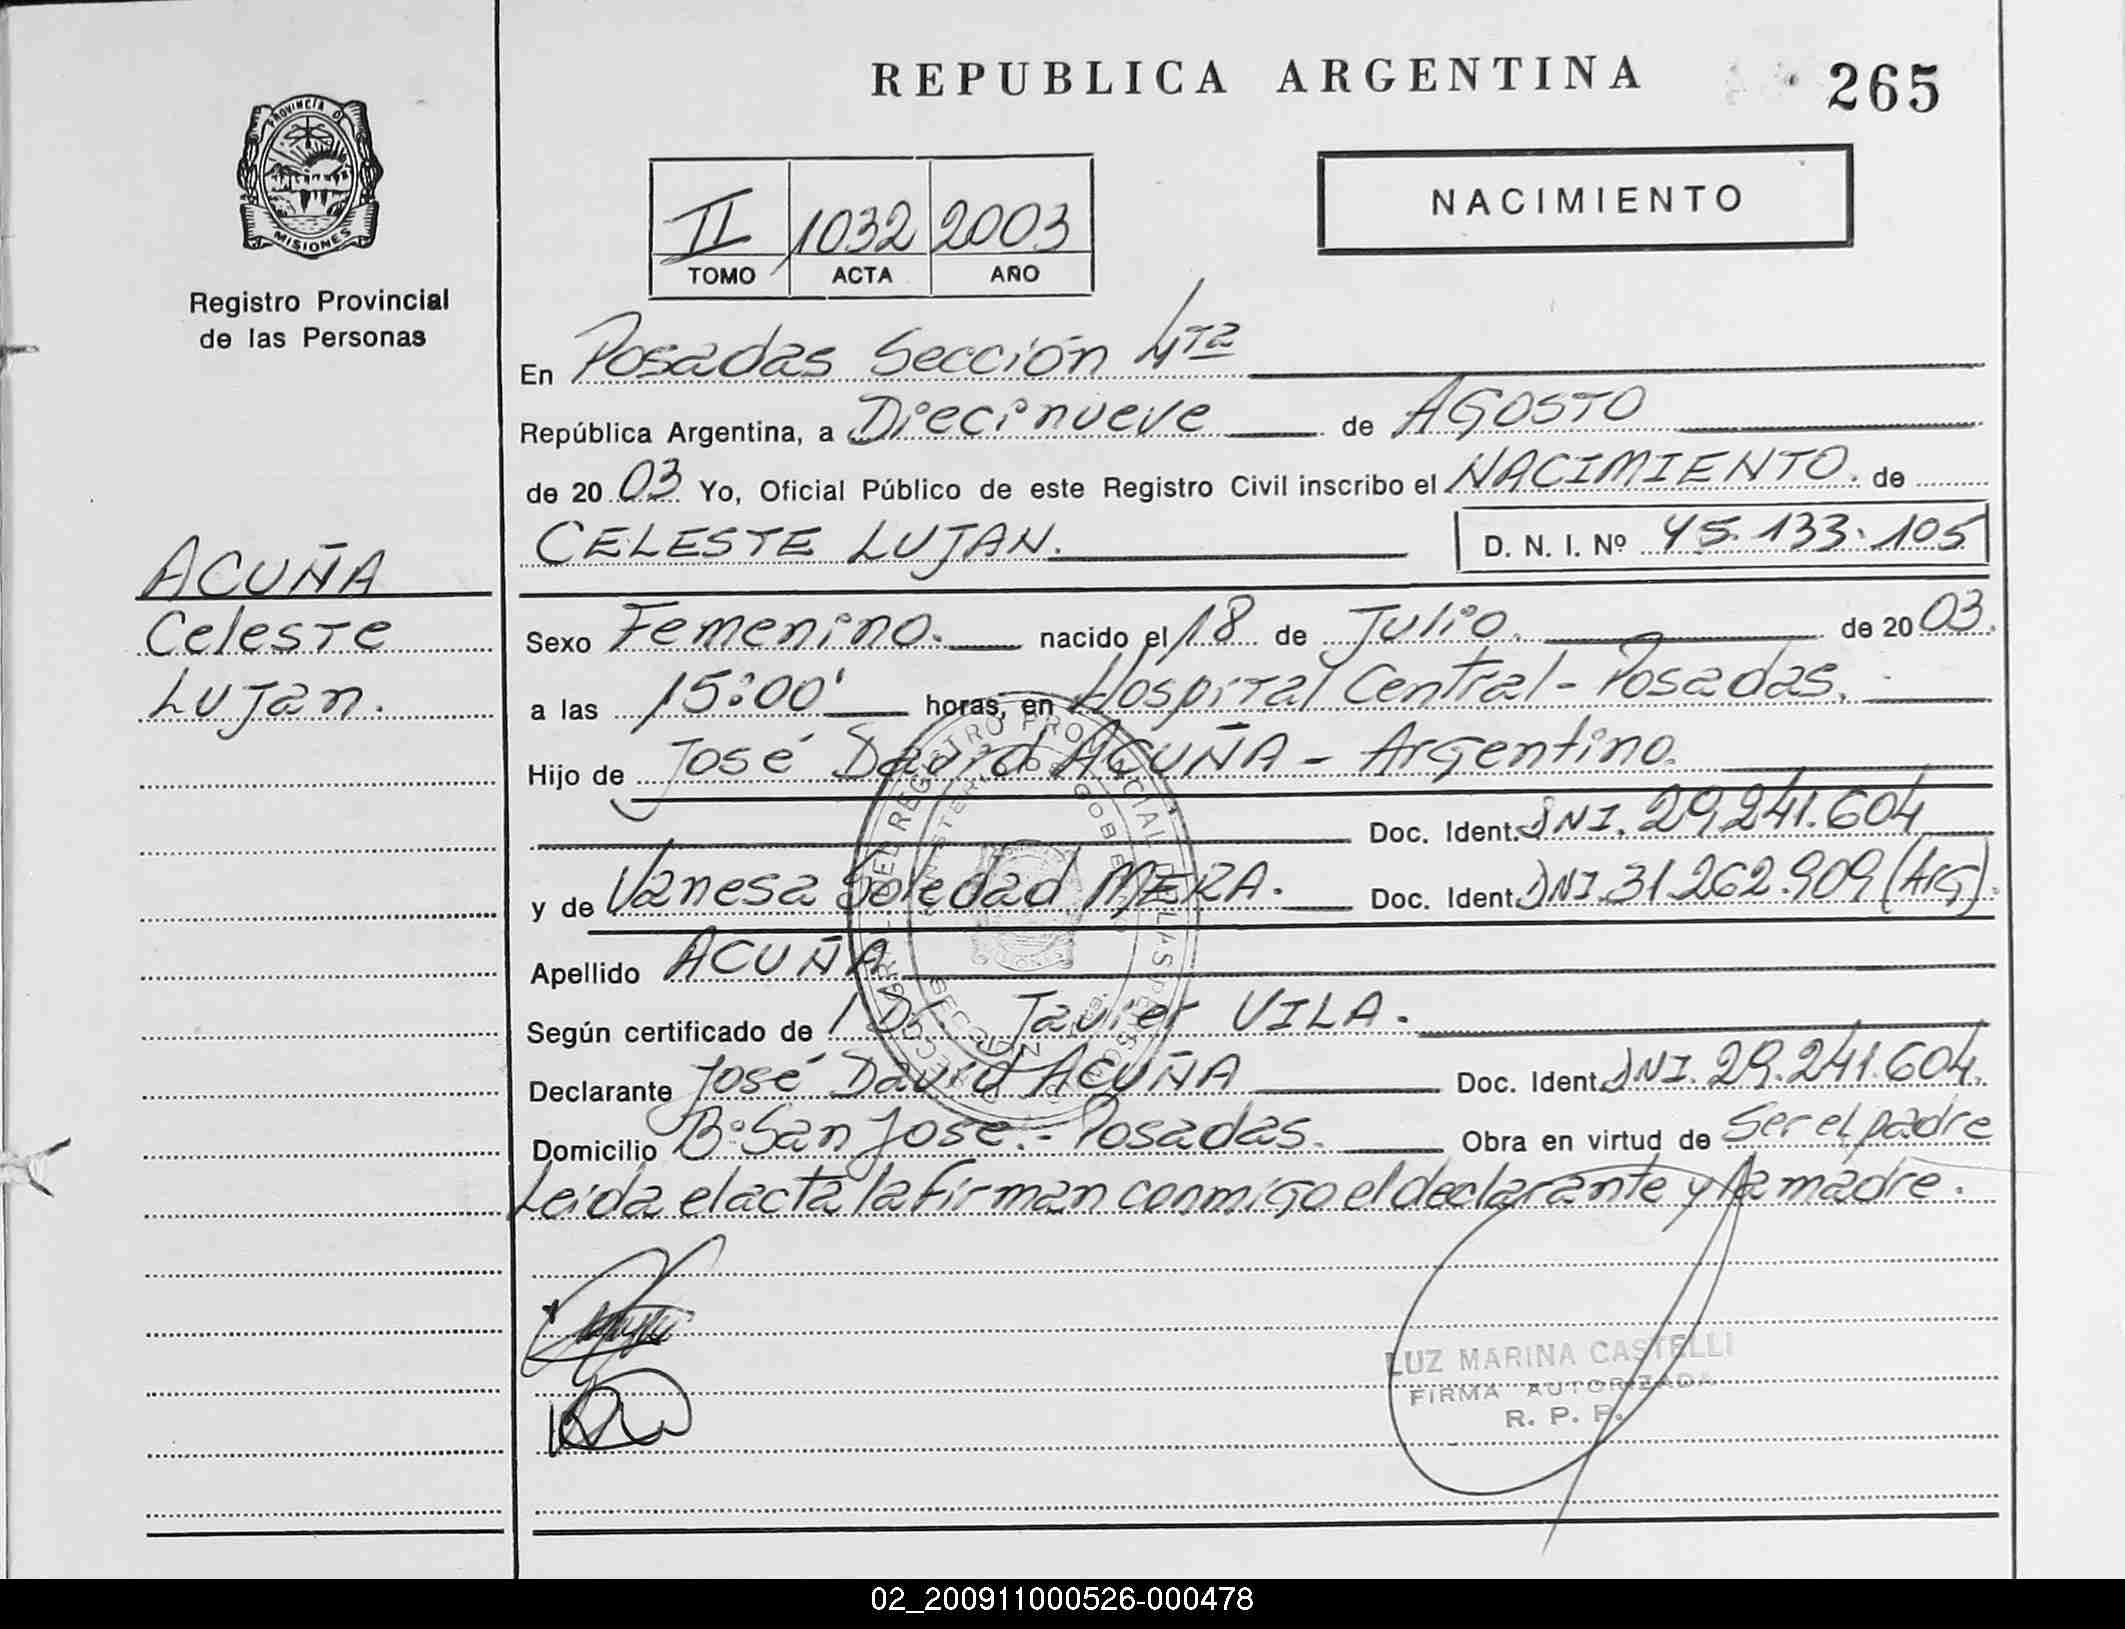 REPUBLICA ARGENTINA
265
PROVINCIA DE
MISIONES
Registro Provincial
de las Personas
II 1032 2003
TOMO ACTA AÑO
NACIMIENTO
En Posadas Sección 4ta
República Argentina, a Diecinueve de AGOSTO
de 20 03 Yo, Oficial Público de este Registro Civil inscribo el NACIMIENTO. de
CELESTE LUJAN. D. N. I. Nº 45.133.105
ACUÑA
Celeste
Lujan.
Sexo Femenino. nacido el 18 de Julio. de 20 03.
a las 15:00' horas, en Hospital Central - Posadas.
Hijo de José David ACUÑA - Argentino.
Doc. Ident. DNI. 29.241.604
y de Vanesa Soledad MERA. Doc. Ident. DNI. 31.262.909 (Arg).
Apellido ACUÑA
Según certificado de Dr. Javier VILA.
Declarante José David ACUÑA Doc. Ident. DNI. 29.241.604.
Domicilio Bº San José. - Posadas. Obra en virtud de Ser el padre
Leida el acta la firman conmigo el declarante y la madre.
LUZ MARINA CASTELLI
FIRMA AUTORIZADA
R. P. P.
02_200911000526-000478